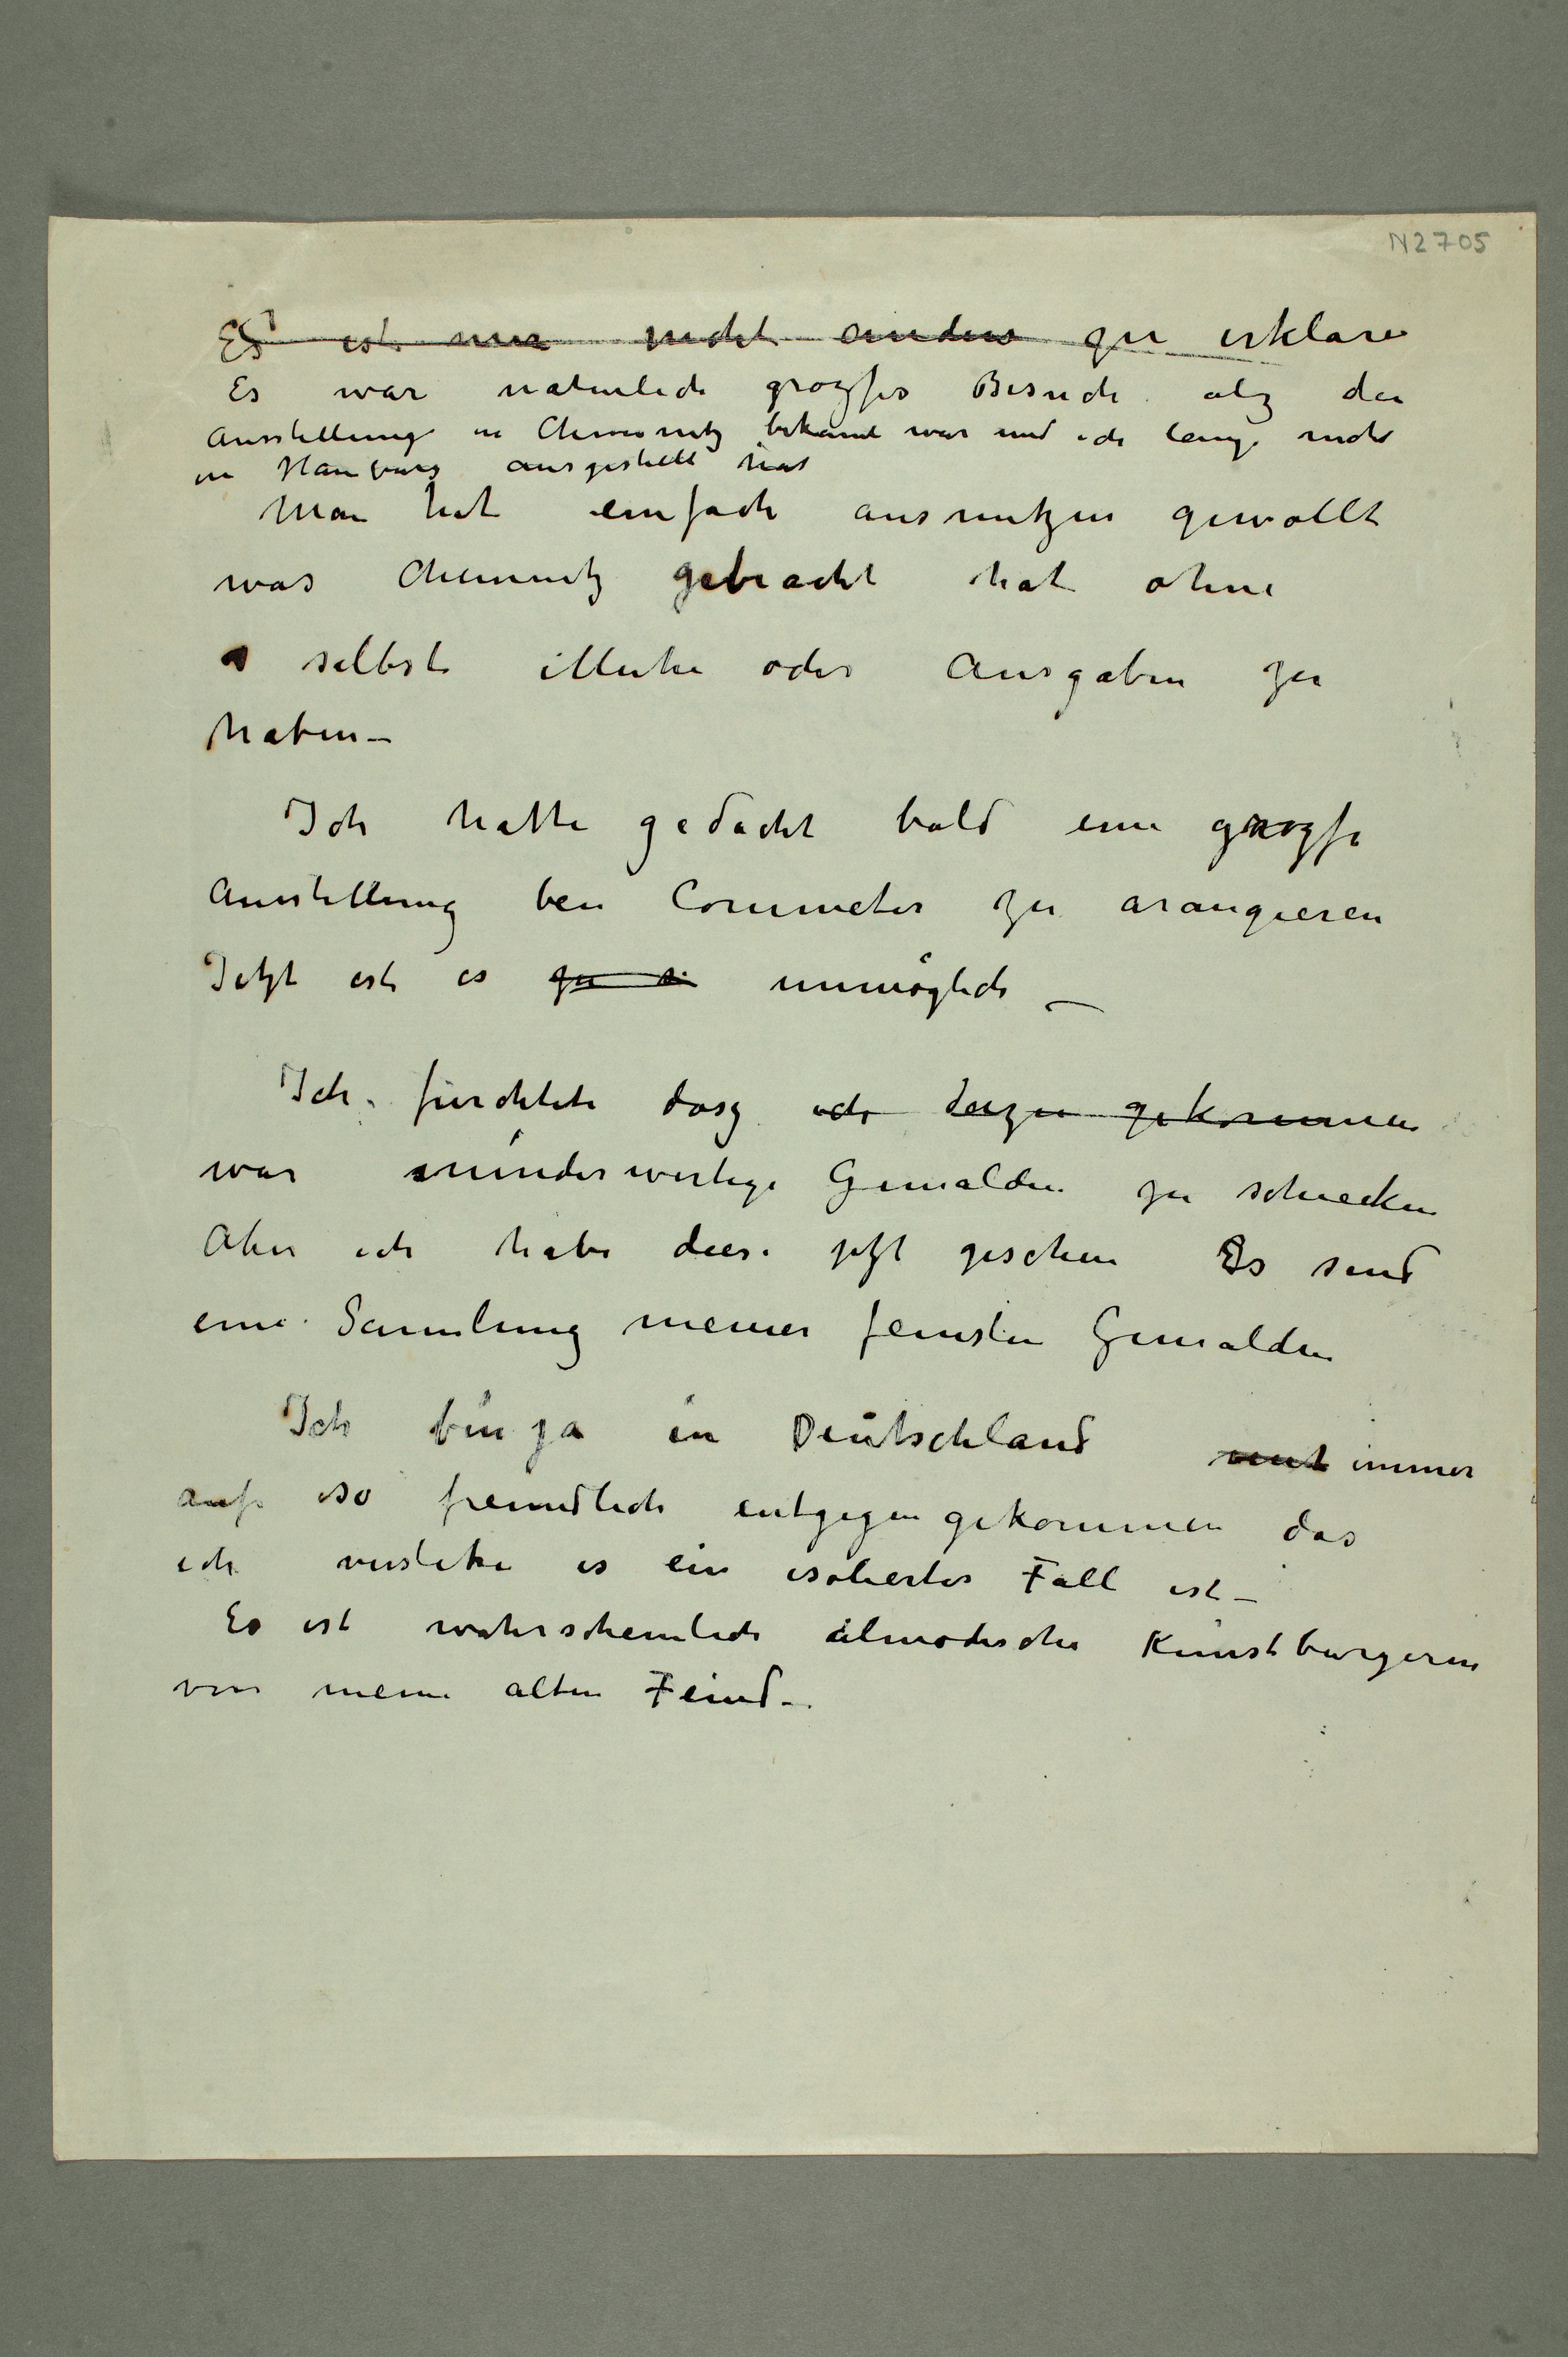 N2705
Es ist mir nicht anders zu erklare
Es war naturlich grozses Besuch alz die
Ausstellung in Chemnitz bekannt war und ich lange nicht
in Hamburg ausgestellt hat
Man hat einfach ausnutzen gewollt
was Chemnitz gebracht hat ohne
selbst oder Ausgaben zu
haben –
Ich hatte gedacht bald eine grozse
Ausstellung bei Commeter zu arangieren
Jetzt ist es zu unmöglich –
Ich fürchtete dasz ich dazu gekommen
war minderwertige Gemalden zu schicken
Aber ich habe diese jetzt gesehen Es sind
eine Samlung meiner feinsten Gemalden
Ich bin ja in Deutschland immer
auf so freundlich entgegengekommen das
ich verstehe es ein isoliertes Fall ist –
Es ist wahrscheinlich almodische Kunstburgeren
von meine alten Feind –